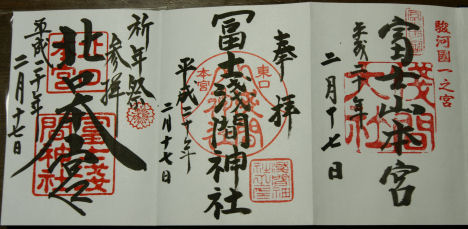 駿河國一之宮
富士山本宮
浅間大社
平成二十年
二月十七日
奉拝
冨士浅間神社
東口
本宮
平成二十年
二月十七日
祈年祭
参拝
北口本宮
冨士浅間神社
平成二十年
二月十七日